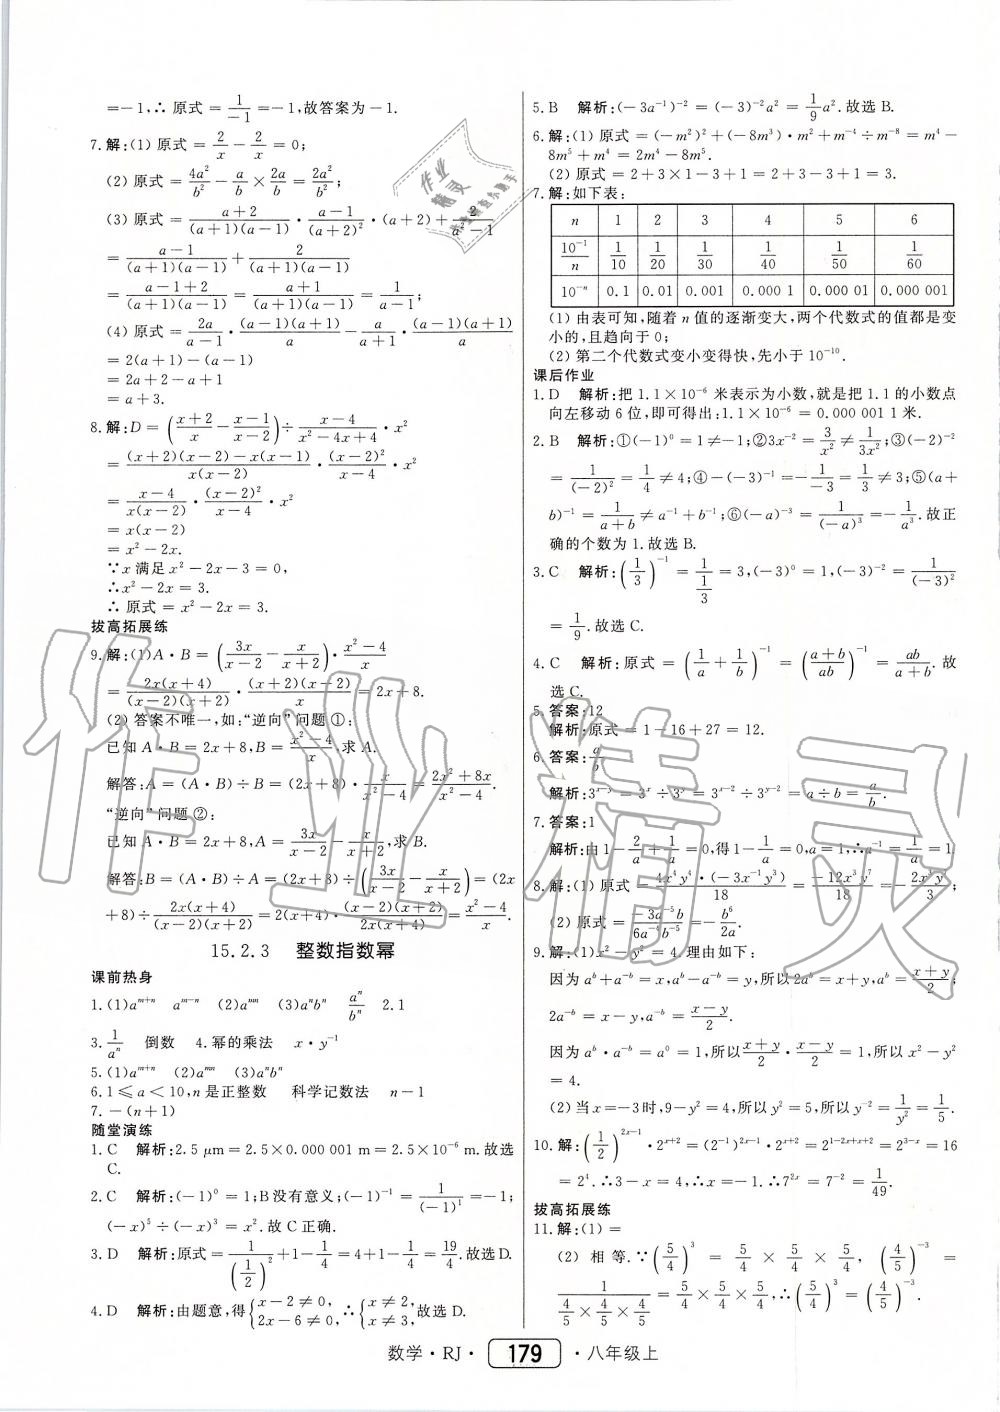 =-1,∴ 原式=1/(-1)=-1,故答案为-1.
7.解:(1) 原式=2/x-2/x=0;
(2) 原式=4a²/b²-a/b×2a/b=2a²/b²;
(3) 原式=(a+2)/((a+1)(a-1))·(a-1)/(a+2)²·(a+2)+2/(a²-1)
=(a-1)/((a+1)(a-1))+2/((a+1)(a-1))
=(a-1+2)/((a+1)(a-1))=(a+1)/((a+1)(a-1))=1/(a-1);
(4) 原式=2a/(a-1)·(a-1)(a+1)/a-a/(a+1)·(a-1)(a+1)/a
=2(a+1)-(a-1)
=2a+2-a+1
=a+3.
8.解:D=((x+2)/x-(x-1)/(x-2))÷(x-4)/(x²-4x+4)·x²
=((x+2)(x-2)-x(x-1))/(x(x-2))·(x-2)²/(x-4)·x²
=(x-4)/(x(x-2))·(x-2)²/(x-4)·x²
=x(x-2)
=x²-2x.
∵x 满足 x²-2x-3=0,
∴x²-2x=3.
∴ 原式=x²-2x=3.
拔高拓展练
9.解:(1)A·B=(3x/(x-2)-x/(x+2))·(x²-4)/x
=2x(x+4)/((x-2)(x+2))·(x-2)(x+2)/x=2x+8.
(2) 答案不唯一,如:“逆向”问题 ①:
已知 A·B=2x+8,B=(x²-4)/x.求 A.
解答:A=(A·B)÷B=(2x+8)·x/(x²-4)=(2x²+8x)/(x²-4).
“逆向”问题 ②:
已知 A·B=2x+8,A=3x/(x-2)-x/(x+2),求 B.
解答:B=(A·B)÷A=(2x+8)÷(3x/(x-2)-x/(x+2))=(2x
+8)÷2x(x+4)/((x-2)(x+2))=2(x+4)·(x-2)(x+2)/(2x(x+4))=(x²-4)/x.
15.2.3 整数指数幂
课前热身
1.(1)aᵐ⁺ⁿ aᵐ⁻ⁿ (2)aᵐⁿ (3)aⁿbⁿ aⁿ/bⁿ 2.1
3.1/aⁿ 倒数 4.幂的乘法 x·y⁻¹
5.(1)aᵐ⁺ⁿ (2)aᵐⁿ (3)aⁿbⁿ
6.1≤a<10,n 是正整数 科学记数法 n-1
7.-(n+1)
随堂演练
1.C 解析:2.5 μm=2.5×0.000 001 m=2.5×10⁻⁶ m.故选
C.
2.C 解析:(-1)⁰=1;B没有意义;(-1)⁻¹=1/(-1)¹=-1;
(-x)⁵÷(-x)³=x².故 C 正确.
3.D 解析:原式=1/(1/2)²+1-1/4=4+1-1/4=19/4.故选D.
4.D 解析:由题意,得{x-2≠0, 2x-6≠0,∴{x≠2, x≠3,故选 D.
5.B 解析:(-3a⁻¹)⁻²=(-3)⁻²a²=1/9a².故选 B.
6.解:(1) 原式=(-m²)²+(-8m³)·m²+m⁻⁴÷m⁻⁸=m⁴-
8m⁵+m⁴=2m⁴-8m⁵.
(2) 原式=2+3×1-3+1=2+3-3+1=3.
7.解:如下表:
n 1 2 3 4 5 6
10⁻¹/n 1/10 1/20 1/30 1/40 1/50 1/60
10⁻ⁿ 0.1 0.01 0.001 0.000 1 0.000 01 0.000 001
(1) 由表可知,随着 n 值的逐渐变大,两个代数式的值都是变
小的,且趋向于 0;
(2) 第二个代数式变小变得快,先小于 10⁻¹⁰.
课后作业
1.D 解析:把 1.1×10⁻⁶ 米表示为小数,就是把 1.1 的小数点
向左移动 6 位,即可得出:1.1×10⁻⁶=0.000 001 1 米.
2.B 解析:①(-1)⁰=1≠-1;②3x⁻²=3/x²≠1/3x²;③(-2)⁻²
=1/(-2)²=1/4≠4;④-(-3)⁻¹=-1/(-3)=1/3≠3;⑤(a+
b)⁻¹=1/(a+b)≠a⁻¹+b⁻¹;⑥(-a)⁻³=1/(-a)³=-1/a³.故正
确的个数为 1.故选 B.
3.C 解析:(1/3)⁻¹=1/(1/3)=3,(-3)⁰=1,(-3)⁻²=1/(-3)²
=1/9.故选 C.
4.C 解析:原式=(1/a+1/b)⁻¹=((a+b)/ab)⁻¹=ab/(a+b).故
选 C.
5.答案:12
解析:原式=1-16+27=12.
6.答案:a/b
解析:3ˣ⁻ʸ=3ˣ÷3ʸ=3ˣ⁻²÷3ʸ⁻²=a÷b=a/b.
7.答案:1
解析:由 1-2/a+1/a²=0,得 1-1/a=0,a=1,∴a⁻¹=1/a=1
8.解:(1) 原式=4x⁴y⁴·(-3x⁻¹y³)/18=-12x³y⁷/18=-2x³y⁷/3;
(2) 原式=-3a⁻⁵b/6a⁻⁴b⁻⁵=-b⁶/2a.
9.解:(1)x²-y²=4.理由如下:
因为 aᵇ+a⁻ᵇ=x,aᵇ-a⁻ᵇ=y,所以 2aᵇ=x+y,aᵇ=(x+y)/2;
2a⁻ᵇ=x-y,a⁻ᵇ=(x-y)/2.
因为 aᵇ·a⁻ᵇ=a⁰=1,所以(x+y)/2·(x-y)/2=1,所以 x²-y²
=4.
(2) 当 x=-3 时,9-y²=4,所以 y²=5,所以 y⁻²=1/y²=1/5.
10.解:(1/2)²ˣ⁻¹·2ˣ⁺²=(2⁻¹)²ˣ⁻¹·2ˣ⁺²=2¹⁻²ˣ⁺ˣ⁺²=2³⁻ˣ=16
=2⁴.∴3-x=4,∴x=-1.∴7²ˣ=7⁻²=1/49.
拔高拓展练
11.解:(1)=
(2) 相等.∵(5/4)³=5/4×5/4×5/4,(4/5)⁻³=
1/(4/5×4/5×4/5)=5/4×5/4×5/4,∴(5/4)³=(4/5)⁻³.
数学·RJ· 179 ·八年级上
作业精灵
作业
精灵